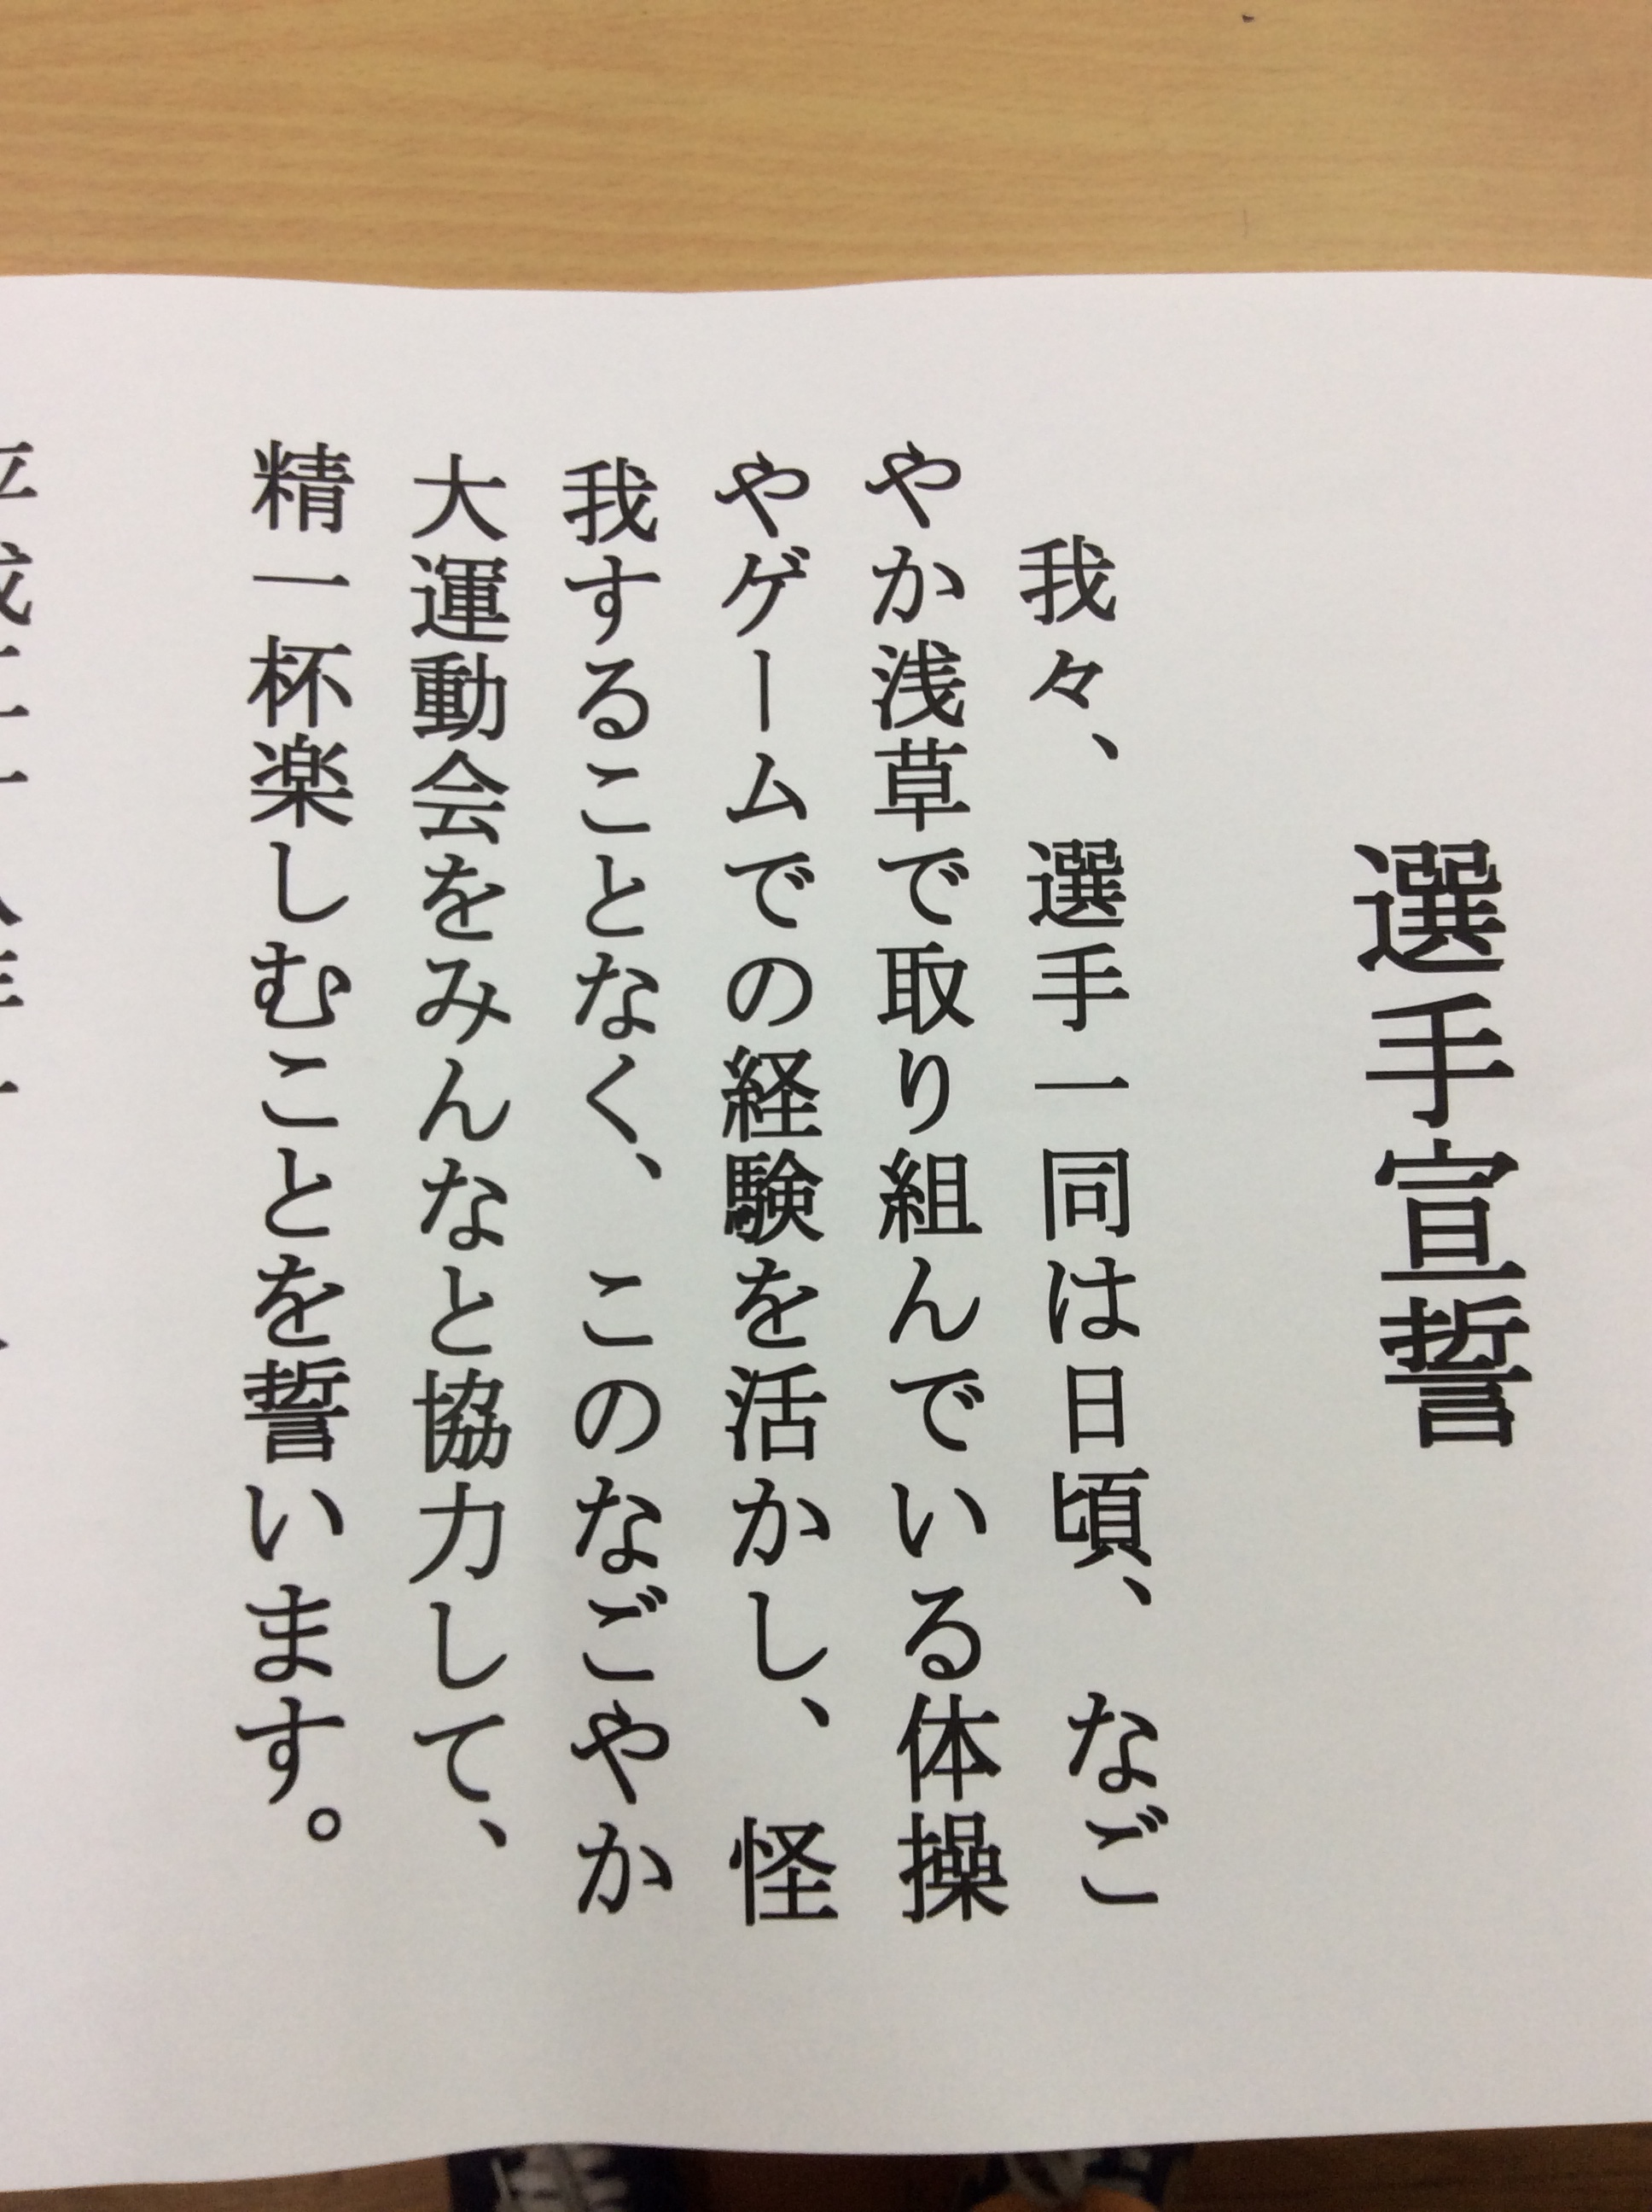 選手宣誓
我々、選手一同は日頃、なご
やか浅草で取り組んでいる体操
やゲームでの経験を活かし、怪
我することなく、このなごやか
大運動会をみんなと協力して、
精一杯楽しむことを誓います。